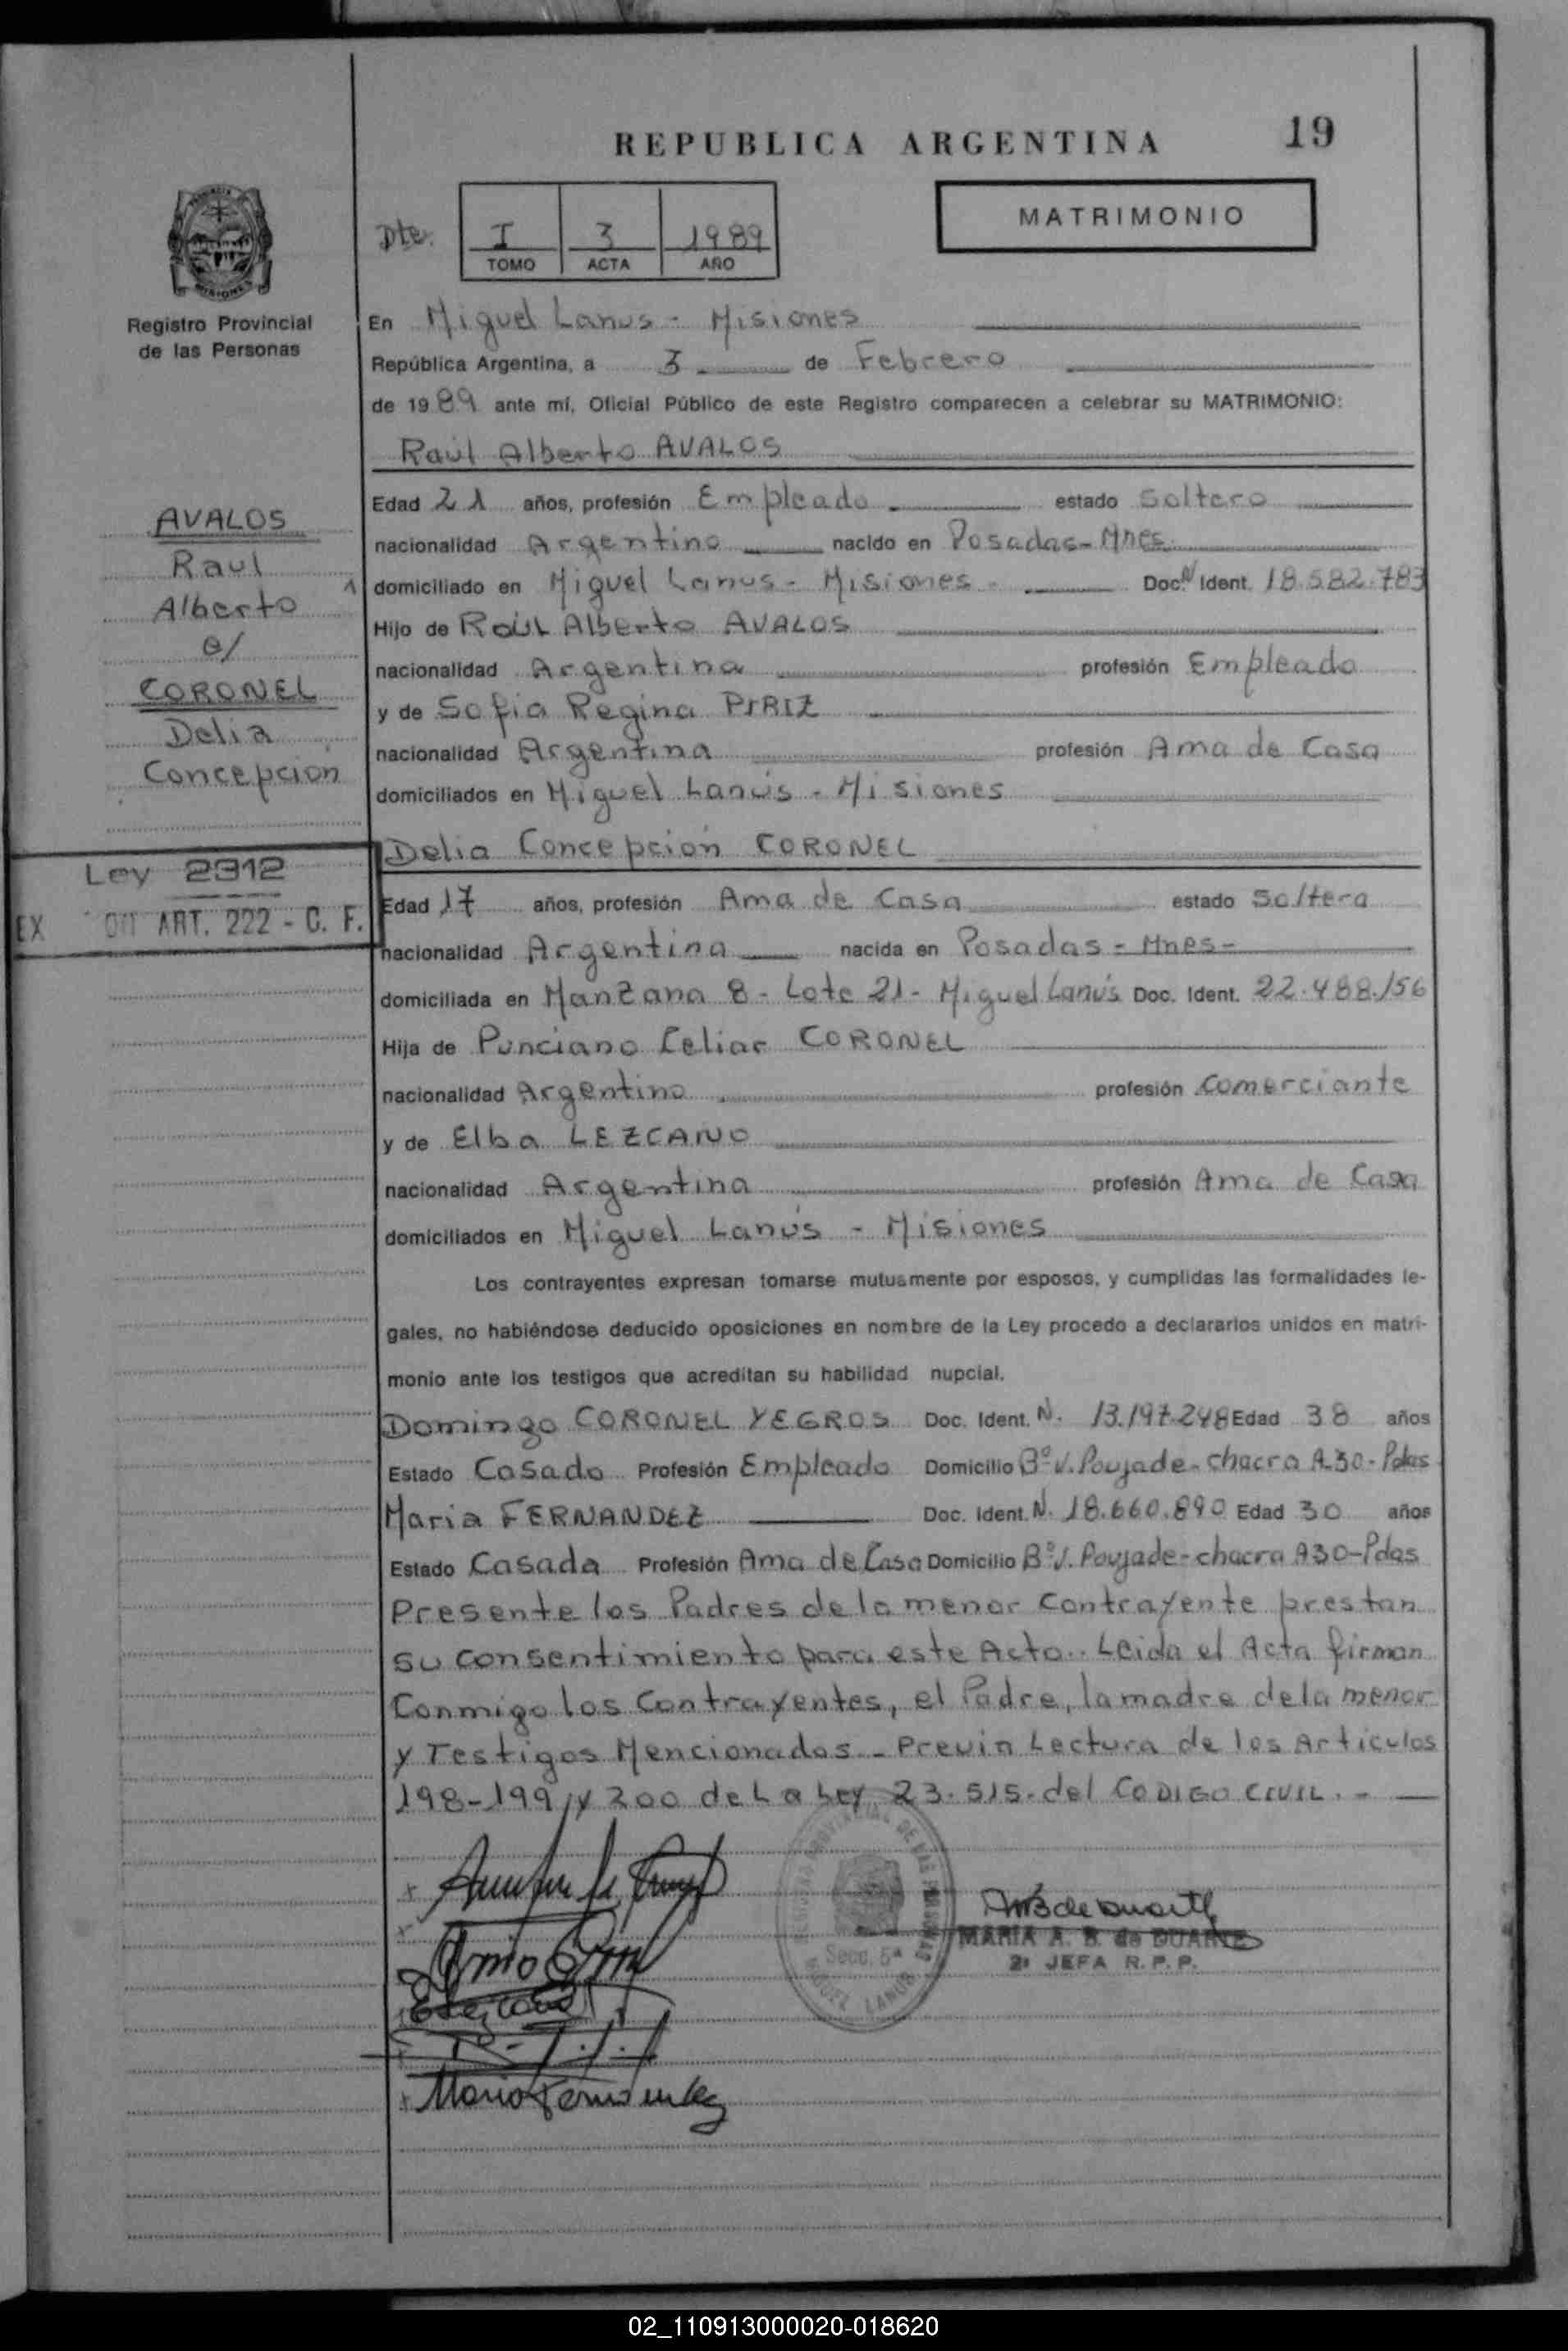 REPUBLICA ARGENTINA
19
MATRIMONIO
Dte.
I 3 1989
TOMO ACTA AÑO
MISIONES
Registro Provincial
de las Personas
En Miguel Lanus - Misiones
República Argentina, a 3 de Febrero
de 1989 ante mí, Oficial Público de este Registro comparecen a celebrar su MATRIMONIO:
Raúl Alberto AVALOS
Edad 21 años, profesión Empleado estado Soltero
nacionalidad Argentino nacido en Posadas-Mnes.
domiciliado en Miguel Lanus - Misiones - Doc. N Ident. 18.582.783
Hijo de Raúl Alberto AVALOS
nacionalidad Argentina profesión Empleado
y de Sofia Regina PIRIZ
nacionalidad Argentina profesión Ama de Casa
domiciliados en Miguel Lanús - Misiones
Delia Concepción CORONEL
Edad 17 años, profesión Ama de Casa estado Soltera
nacionalidad Argentina nacida en Posadas - Mnes-
domiciliada en Manzana 8 - Lote 21 - Miguel Lanús Doc. Ident. 22.488.156
Hija de Punciano Celiar CORONEL
nacionalidad Argentino profesión Comerciante
y de Elba LEZCANO
nacionalidad Argentina profesión Ama de Casa
domiciliados en Miguel Lanús - Misiones
Los contrayentes expresan tomarse mutuamente por esposos, y cumplidas las formalidades le-
gales, no habiéndose deducido oposiciones en nombre de la Ley procedo a declararlos unidos en matri-
monio ante los testigos que acreditan su habilidad nupcial.
Domingo CORONEL YEGROS Doc. Ident. N. 13.197.248 Edad 38 años
Estado Casado Profesión Empleado Domicilio Bº V. Poujade - chacra A-30 - Pdas
Maria FERNANDEZ Doc. Ident. N. 18.660.890 Edad 30 años
Estado Casada Profesión Ama de Casa Domicilio Bº V. Poujade - chacra A30-Pdas
Presente los Padres de la menor Contrayente prestan
su consentimiento para este Acto.. Leida el Acta firman
Conmigo los Contrayentes, el Padre, la madre de la menor
y Testigos Mencionados - Previa Lectura de los Articulos
198-199 y 200 de La Ley 23.515. del CODIGO CIVIL. -
AVALOS
Raul
Alberto
c/
CORONEL
Delia
Concepción
Ley 2312
EX ART. 222 - C. F.
Secc. 5ª
MIGUEL LANUS
MARIA A. B. de DUARTE
2ª JEFA R. P. P.
Maria Fernandez
02_110913000020-018620